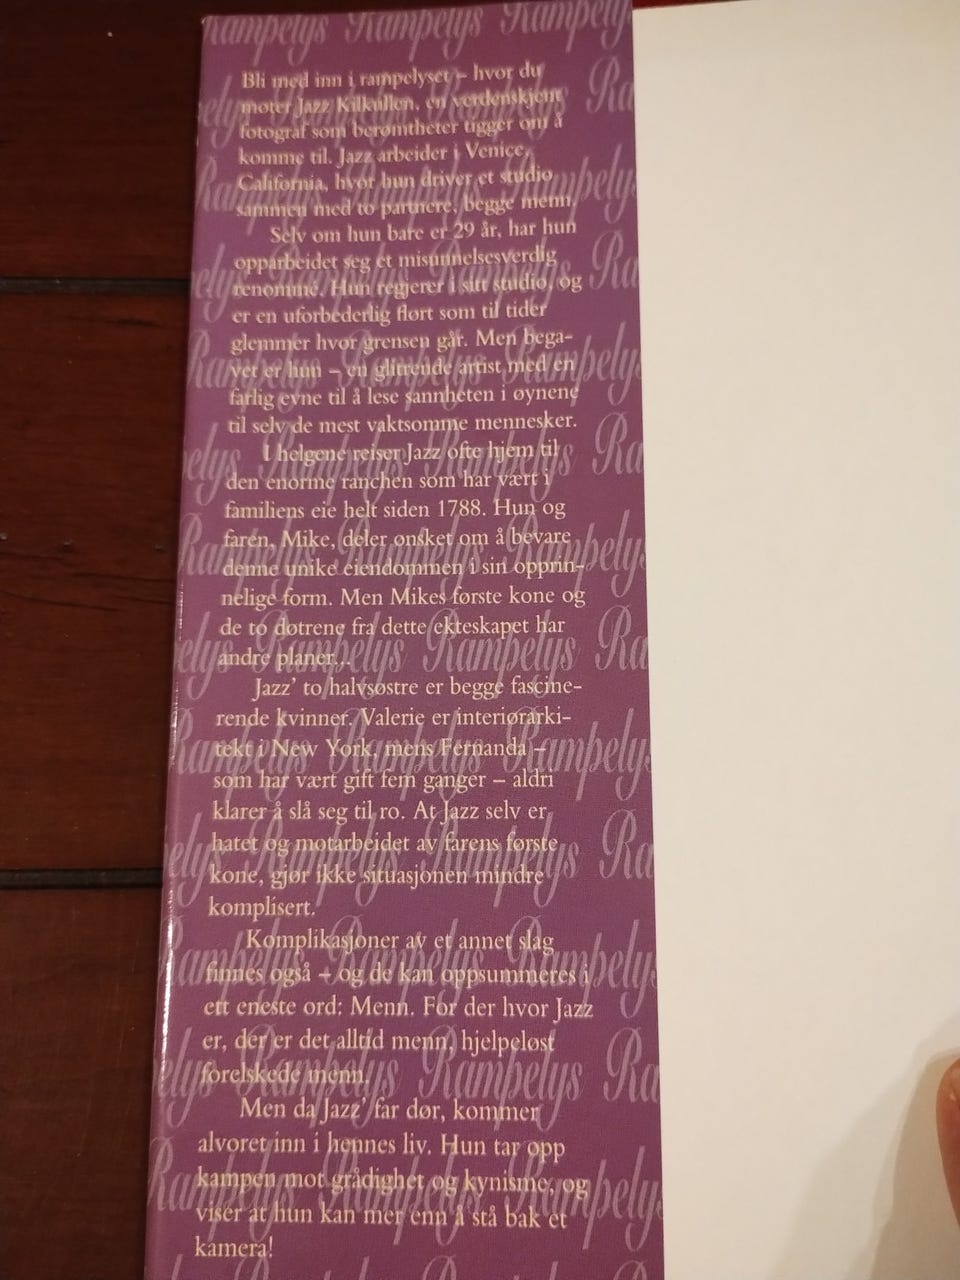 Rampelys Rampelys Rampelys
Bli med inn i rampelyset – hvor du
møter Jazz Kilkullen, en verdenskjent
fotograf som berømtheter tigger om å
komme til. Jazz arbeider i Venice,
California, hvor hun driver et studio
sammen med to partnere, begge menn.
Selv om hun bare er 29 år, har hun
opparbeidet seg et misunnelsesverdig
renommé. Hun regjerer i sitt studio, og
er en uforbederlig flørt som til tider
glemmer hvor grensen går. Men bega-
vet er hun – en glitrende artist med en
farlig evne til å lese sannheten i øynene
til selv de mest vaktsomme mennesker.
I helgene reiser Jazz ofte hjem til
den enorme ranchen som har vært i
familiens eie helt siden 1788. Hun og
faren, Mike, deler ønsket om å bevare
denne unike eiendommen i sin opprin-
nelige form. Men Mikes første kone og
de to døtrene fra dette ekteskapet har
andre planer...
Jazz’ to halvsøstre er begge fascine-
rende kvinner. Valerie er interiørarki-
tekt i New York, mens Fernanda –
som har vært gift fem ganger – aldri
klarer å slå seg til ro. At Jazz selv er
hatet og motarbeidet av farens første
kone, gjør ikke situasjonen mindre
komplisert.
Komplikasjoner av et annet slag
finnes også – og de kan oppsummeres i
ett eneste ord: Menn. For der hvor Jazz
er, der er det alltid menn, hjelpeløst
forelskede menn.
Men da Jazz’ far dør, kommer
alvoret inn i hennes liv. Hun tar opp
kampen mot grådighet og kynisme, og
viser at hun kan mer enn å stå bak et
kamera!